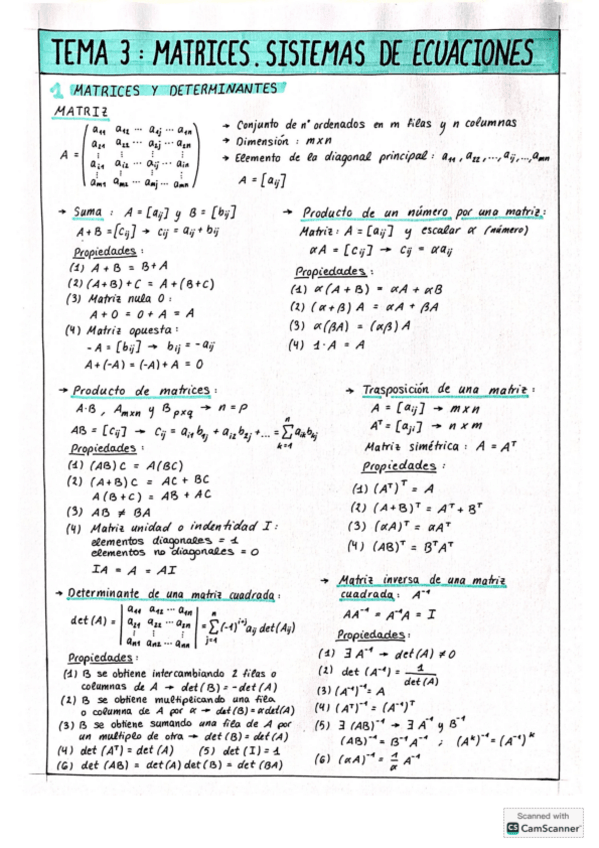 TEMA 3: MATRICES. SISTEMAS DE ECUACIONES
1 MATRICES Y DETERMINANTES
MATRIZ
A = ( a₁₁ a₁₂ ⋯ a₁ⱼ ⋯ a₁ₙ
a₂₁ a₂₂ ⋯ a₂ⱼ ⋯ a₂ₙ
⋮ ⋮ ⋮ ⋮
aᵢ₁ aᵢ₂ ⋯ aᵢⱼ ⋯ aᵢₙ
⋮ ⋮ ⋮ ⋮
aₘ₁ aₘ₂ ⋯ aₘⱼ ⋯ aₘₙ )
→ Conjunto de nº ordenados en m filas y n columnas
→ Dimensión : m×n
→ Elemento de la diagonal principal : a₁₁, a₂₂, ..., aᵢⱼ, ..., aₘₙ
A = [aᵢⱼ]
→ Suma : A = [aᵢⱼ] y B = [bᵢⱼ]
A + B = [cᵢⱼ] → cᵢⱼ = aᵢⱼ + bᵢⱼ
Propiedades :
(1) A + B = B + A
(2) (A+B) + C = A + (B+C)
(3) Matriz nula 0 :
A + 0 = 0 + A = A
(4) Matriz opuesta :
-A = [bᵢⱼ] → bᵢⱼ = -aᵢⱼ
A + (-A) = (-A) + A = 0
→ Producto de un número por una matriz :
Matriz : A = [aᵢⱼ] y escalar α (número)
αA = [cᵢⱼ] → cᵢⱼ = αaᵢⱼ
Propiedades :
(1) α(A + B) = αA + αB
(2) (α+β) A = αA + βA
(3) α(βA) = (αβ) A
(4) 1·A = A
→ Producto de matrices :
A·B , Aₘₓₙ y Bₚₓq → n = p
AB = [cᵢⱼ] → cᵢⱼ = aᵢ₁b₁ⱼ + aᵢ₂b₂ⱼ + ... = Σₖ₌₁ⁿ aᵢₖbₖⱼ
Propiedades :
(1) (AB) C = A(BC)
(2) (A+B) C = AC + BC
A(B+C) = AB + AC
(3) AB ≠ BA
(4) Matriz unidad o indentidad I :
elementos diagonales = 1
elementos no diagonales = 0
IA = A = AI
→ Trasposición de una matriz :
A = [aᵢⱼ] → m×n
Aᵀ = [aⱼᵢ] → n×m
Matriz simétrica : A = Aᵀ
Propiedades :
(1) (Aᵀ)ᵀ = A
(2) (A+B)ᵀ = Aᵀ + Bᵀ
(3) (αA)ᵀ = αAᵀ
(4) (AB)ᵀ = BᵀAᵀ
→ Determinante de una matriz cuadrada :
det(A) = | a₁₁ a₁₂ ⋯ a₁ₙ
a₂₁ a₂₂ ⋯ a₂ₙ
⋮ ⋮ ⋮
aₙ₁ aₙ₂ ⋯ aₙₙ | = Σⱼ₌₁ⁿ (-1)ⁱ⁺ʲ aᵢⱼ det(Aᵢⱼ)
Propiedades :
(1) B se obtiene intercambiando 2 filas o
columnas de A → det(B) = -det(A)
(2) B se obtiene multiplicando una fila
o columna de A por α → det(B) = αdet(A)
(3) B se obtiene sumando una fila de A por
un multiplo de otra → det(B) = det(A)
(4) det (Aᵀ) = det(A) (5) det (I) = 1
(6) det (AB) = det(A) det(B) = det(BA)
→ Matriz inversa de una matriz
cuadrada : A⁻¹
AA⁻¹ = A⁻¹A = I
Propiedades :
(1) ∃ A⁻¹ → det(A) ≠ 0
(2) det (A⁻¹) = 1/det(A)
(3) (A⁻¹)⁻¹ = A
(4) (Aᵀ)⁻¹ = (A⁻¹)ᵀ
(5) ∃ (AB)⁻¹ → ∃ A⁻¹ y B⁻¹
(AB)⁻¹ = B⁻¹A⁻¹ ; (Aᵏ)⁻¹ = (A⁻¹)ᵏ
(6) (αA)⁻¹ = 1/α A⁻¹
Scanned with
CS CamScanner